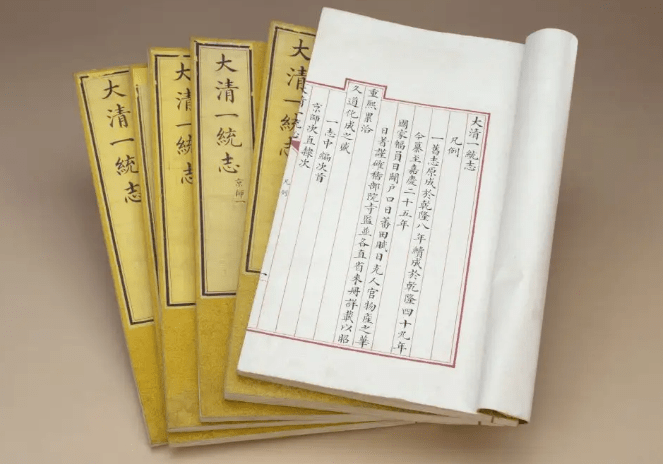 大清一統志
凡例
一舊志原成於乾隆八年續成於乾隆四十九年
今纂至嘉慶二十五年
國家幅員日闢户口日蕃田賦日充人官物產之華
日著謹確稽部院寺監並各直省來冊詳載以昭
重熙累洽
久道化成之盛
一志中編次首
京師次直隸次
大清一統志
凡例
一
大清一統志
京師一
大清一統志
大清一統志